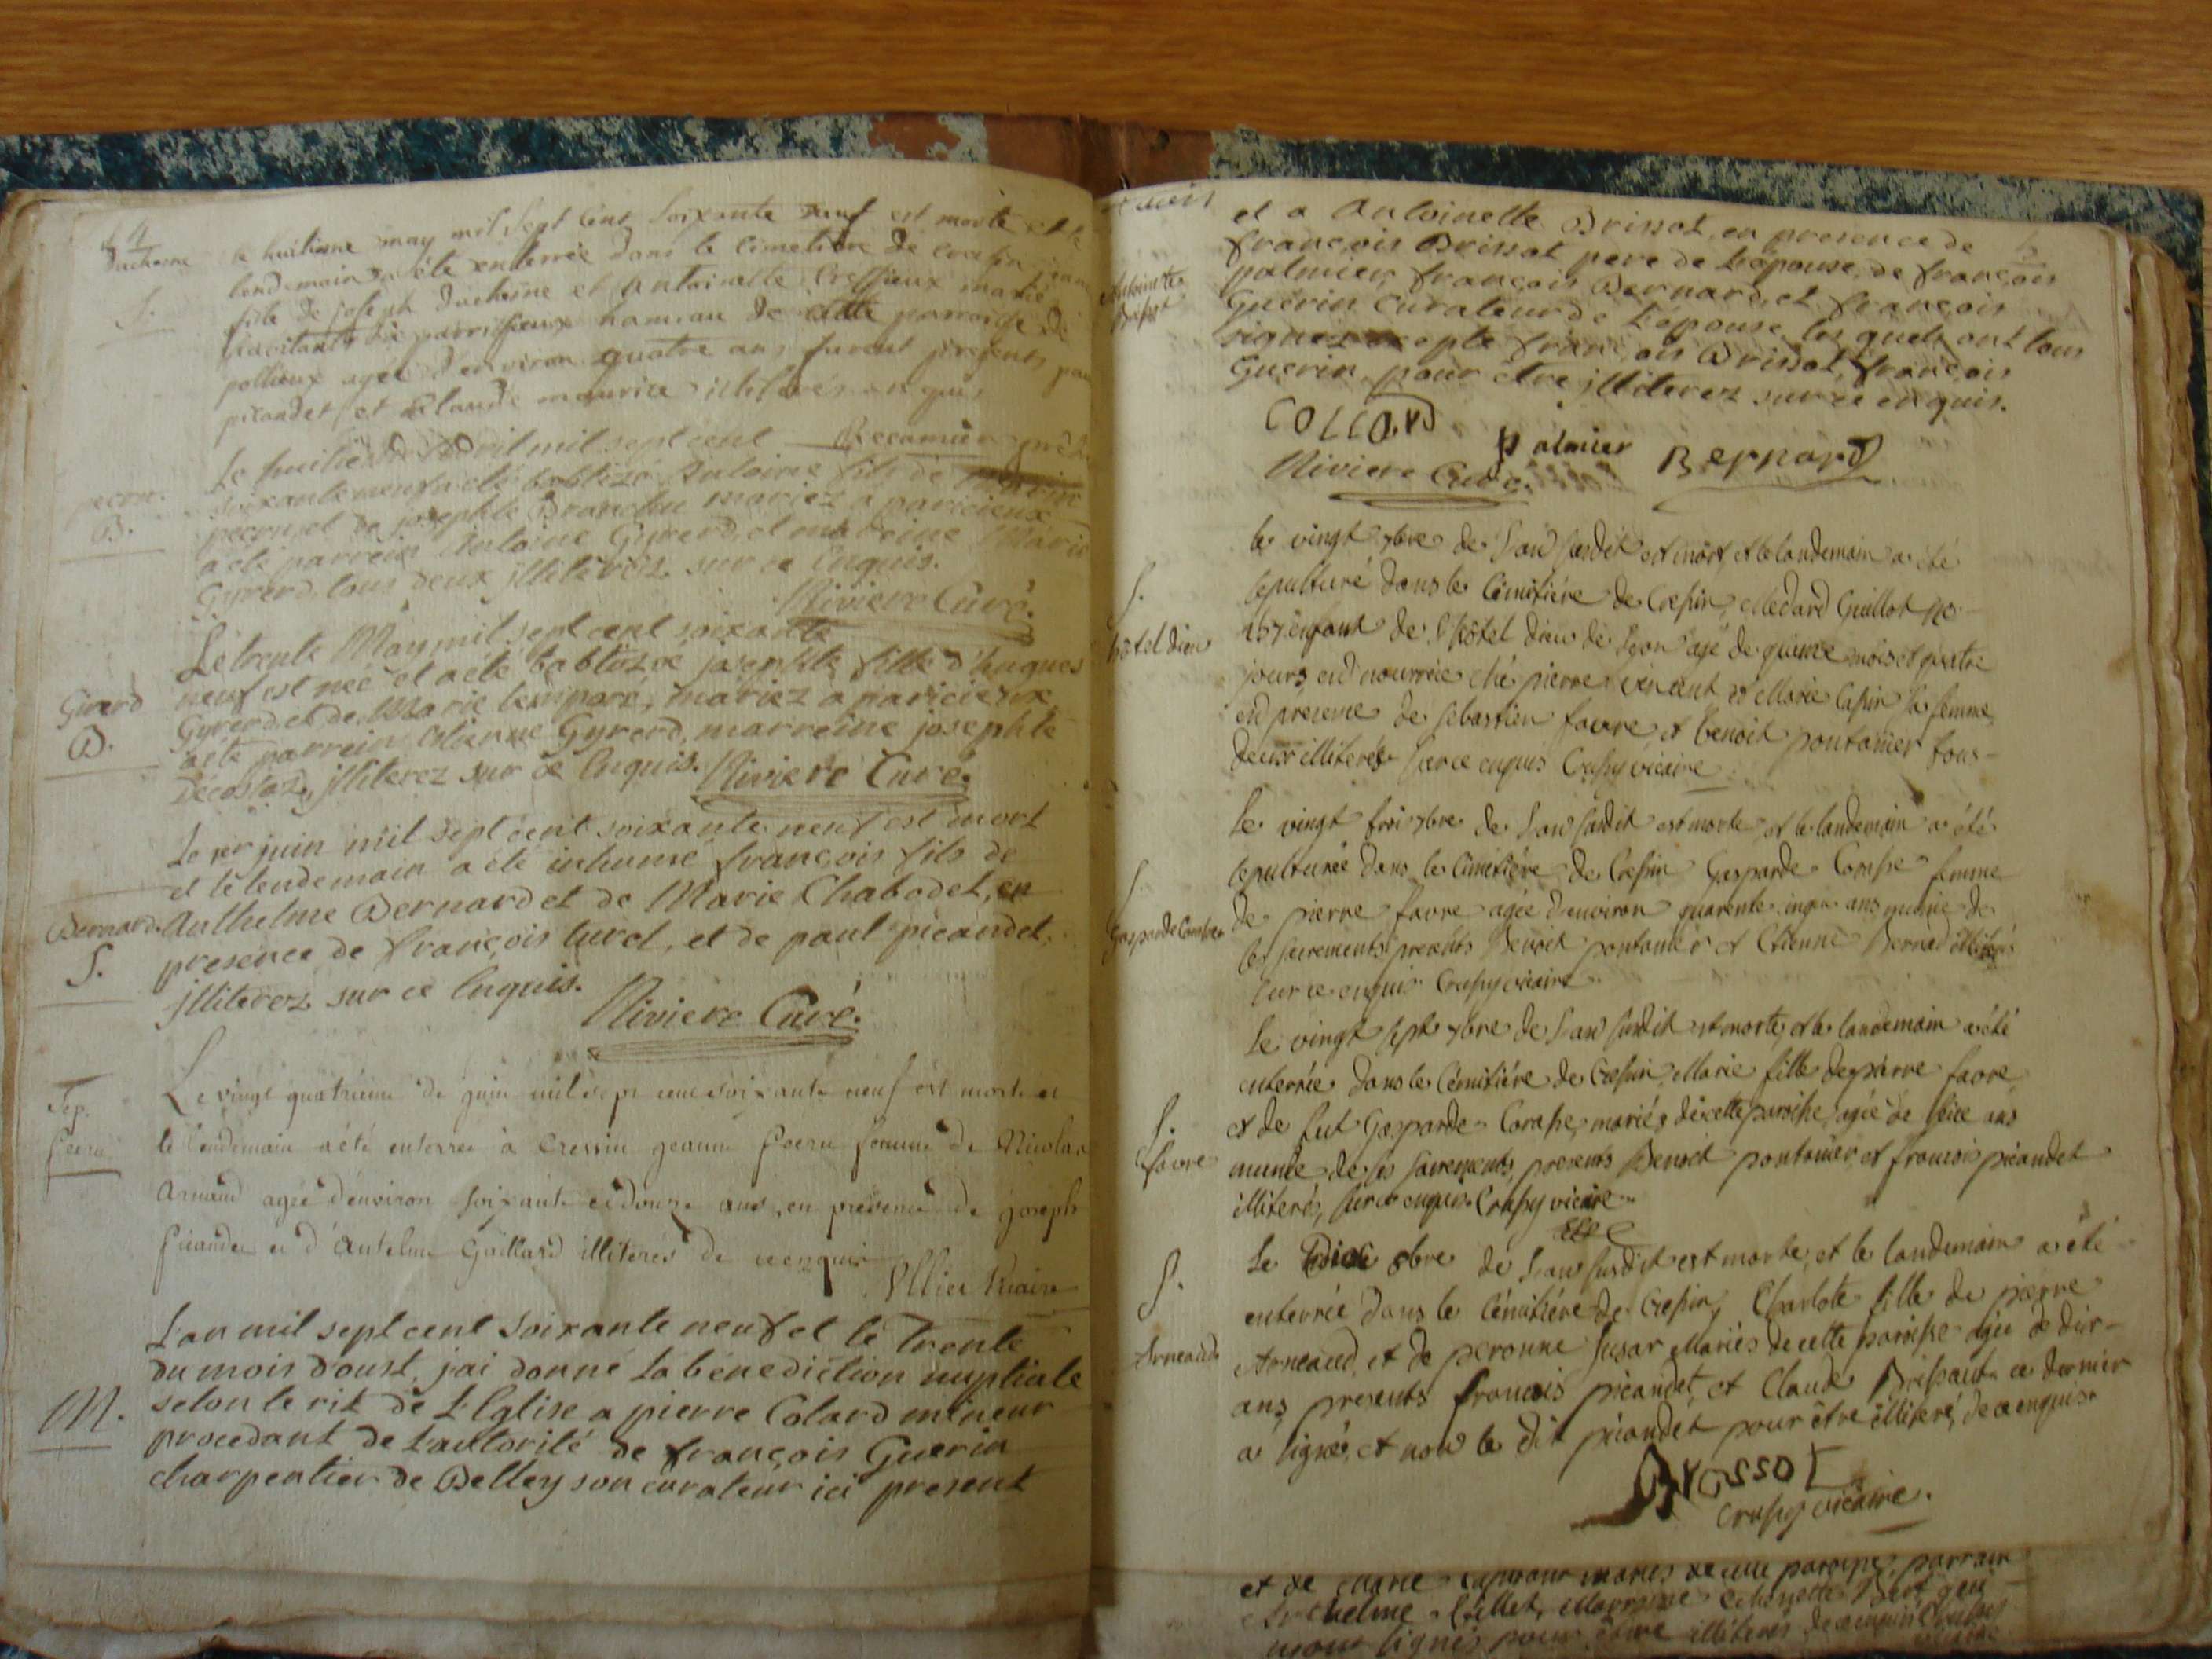 duchesne
le huitieme may mil sept cent soixante neuf est morte et le
lendemain a été enterrée dans le cimetiere de cressin
S.
fille de joseph duchesne et antoinette Cressieux mariés
habitants de parrissieux hameau de cette parroisse de
pollieux agée d'environ quatre ans furent presents
picandet et claude maurice illiterés enquis
Le huitieme d'avril mil sept cent Recamier
soixante neuf a été babtizé Antoine fils de
pecru.
B.
pecru, et de josephte Branchu mariez a paricieux
a eté parrein Antoine Gyrerd, et marreine Marie
Gyrerd tous deux illiterez sur ce Enquis.
Riviere Curé.
Le trente May mil sept cent soixante
neuf est née et a eté babtizée josephte fille d'hugues
Girerd
B.
Gyrerd et de Marie lemparé, mariez a paricieux
a eté parrein etienne Gyrerd, marreine josephte
Décostaz, jlliterez sur ce Enquis. Riviere Curé.
Le 1er juin mil sept cent soixante neuf est mort
et le lendemain a été inhumé françois fils de
Bernard.
S.
Anthelme Bernard et de Marie Chabodet, en
presence de françois turel, et de paul picandet,
jlliterez sur ce Enquis.
Riviere Curé.
Sep.
Pecru
Le vingt quatrieme de juin mil sept cent soixante neuf est morte et
le lendemain a été enterrée a Cressin jeanne Pecru femme de Nicolas
Arnaud agée d'environ soixante et douze ans, en presence de joseph
Picandet et d'Antelme Gaillard illiterés de ce enquis
Ollier Vicaire
L'an mil sept cent soixante neuf et le trente
du mois d'oust, j'ai donné la bénediction nuptiale
M.
selon le rit de L'Eglise a pierre Colard mineur
procedant de L'autorité de françois Guerin
charpentier de Belley son curateur ici present
et a Antoinette Brissot, en presence de
françois Brissot pere de L'épouse, de françois
Antoinette
Brissot
palmier, françois Bernard, et françois
Guerin curateur de L'épouse, les quels ont tous
signez excepté françois Brissot, françois
Guerin, pour être jlliterez sur ce enquis.
COLLARD
palmier Bernard
Riviere Curé.
le vingt 7bre de l'an susdit est mort, et le landemain a été
S.
hôtel dieu
sepulturé dans le Cémitiére de Cressin, Medard Guillot
enfant de l'hôtel dieu de Lyon agé de quinze mois et quatre
jours, en nourrice ché pierre vincent et Marie Cassin sa femme,
en presence de sebastien favre et benoit pontanier tous-
deux illiterés sur ce enquis Crussy vicaire
Le vingt troi 7bre de l'an susdit est morte, et le landemain a été
S.
Gasparde Combe
sepulturée dans le Cimétiére de Cressin Gasparde femme
de pierre favre agée d'environ quarente cinq ans munie de
ses sacrements presents Benoit pontanier et Etienne Bernad illiterés
sur ce enquis Crussy vicaire.
Le vingt sept 7bre de l'an susdit est morte, et le landemain a été
enterrée dans le Cémitiére de Cressin, Marie fille de pierre favre
S.
favre
et de fut Gasparde mariés de cette paroisse, agée de seize ans
munie de ses sacrements, presents Benoit pontanier, et francois picandet
illiterés, sur ce enquis. Crussy vicaire.
Le 8bre de l'an susdit est morte, et le landemain a été
S.
Arneaud
enterrée dans le Cémitiére de Cressin, Charlote fille de pierre
Arneaud, et de peronne Mariés de cette paroisse agée de dix-
ans, presents francois picandet, et Claude Brissaut ce dernier
a signé, et non le dit picandet pour être illiteré, de ce enquis.
BrassoT
Crussy vicaire.
et de Marie mariés de cette paroisse, parrain
Anthelme Marraine qui
n'ont signés pour être illiterés de ce enquis Crussy
vicaire